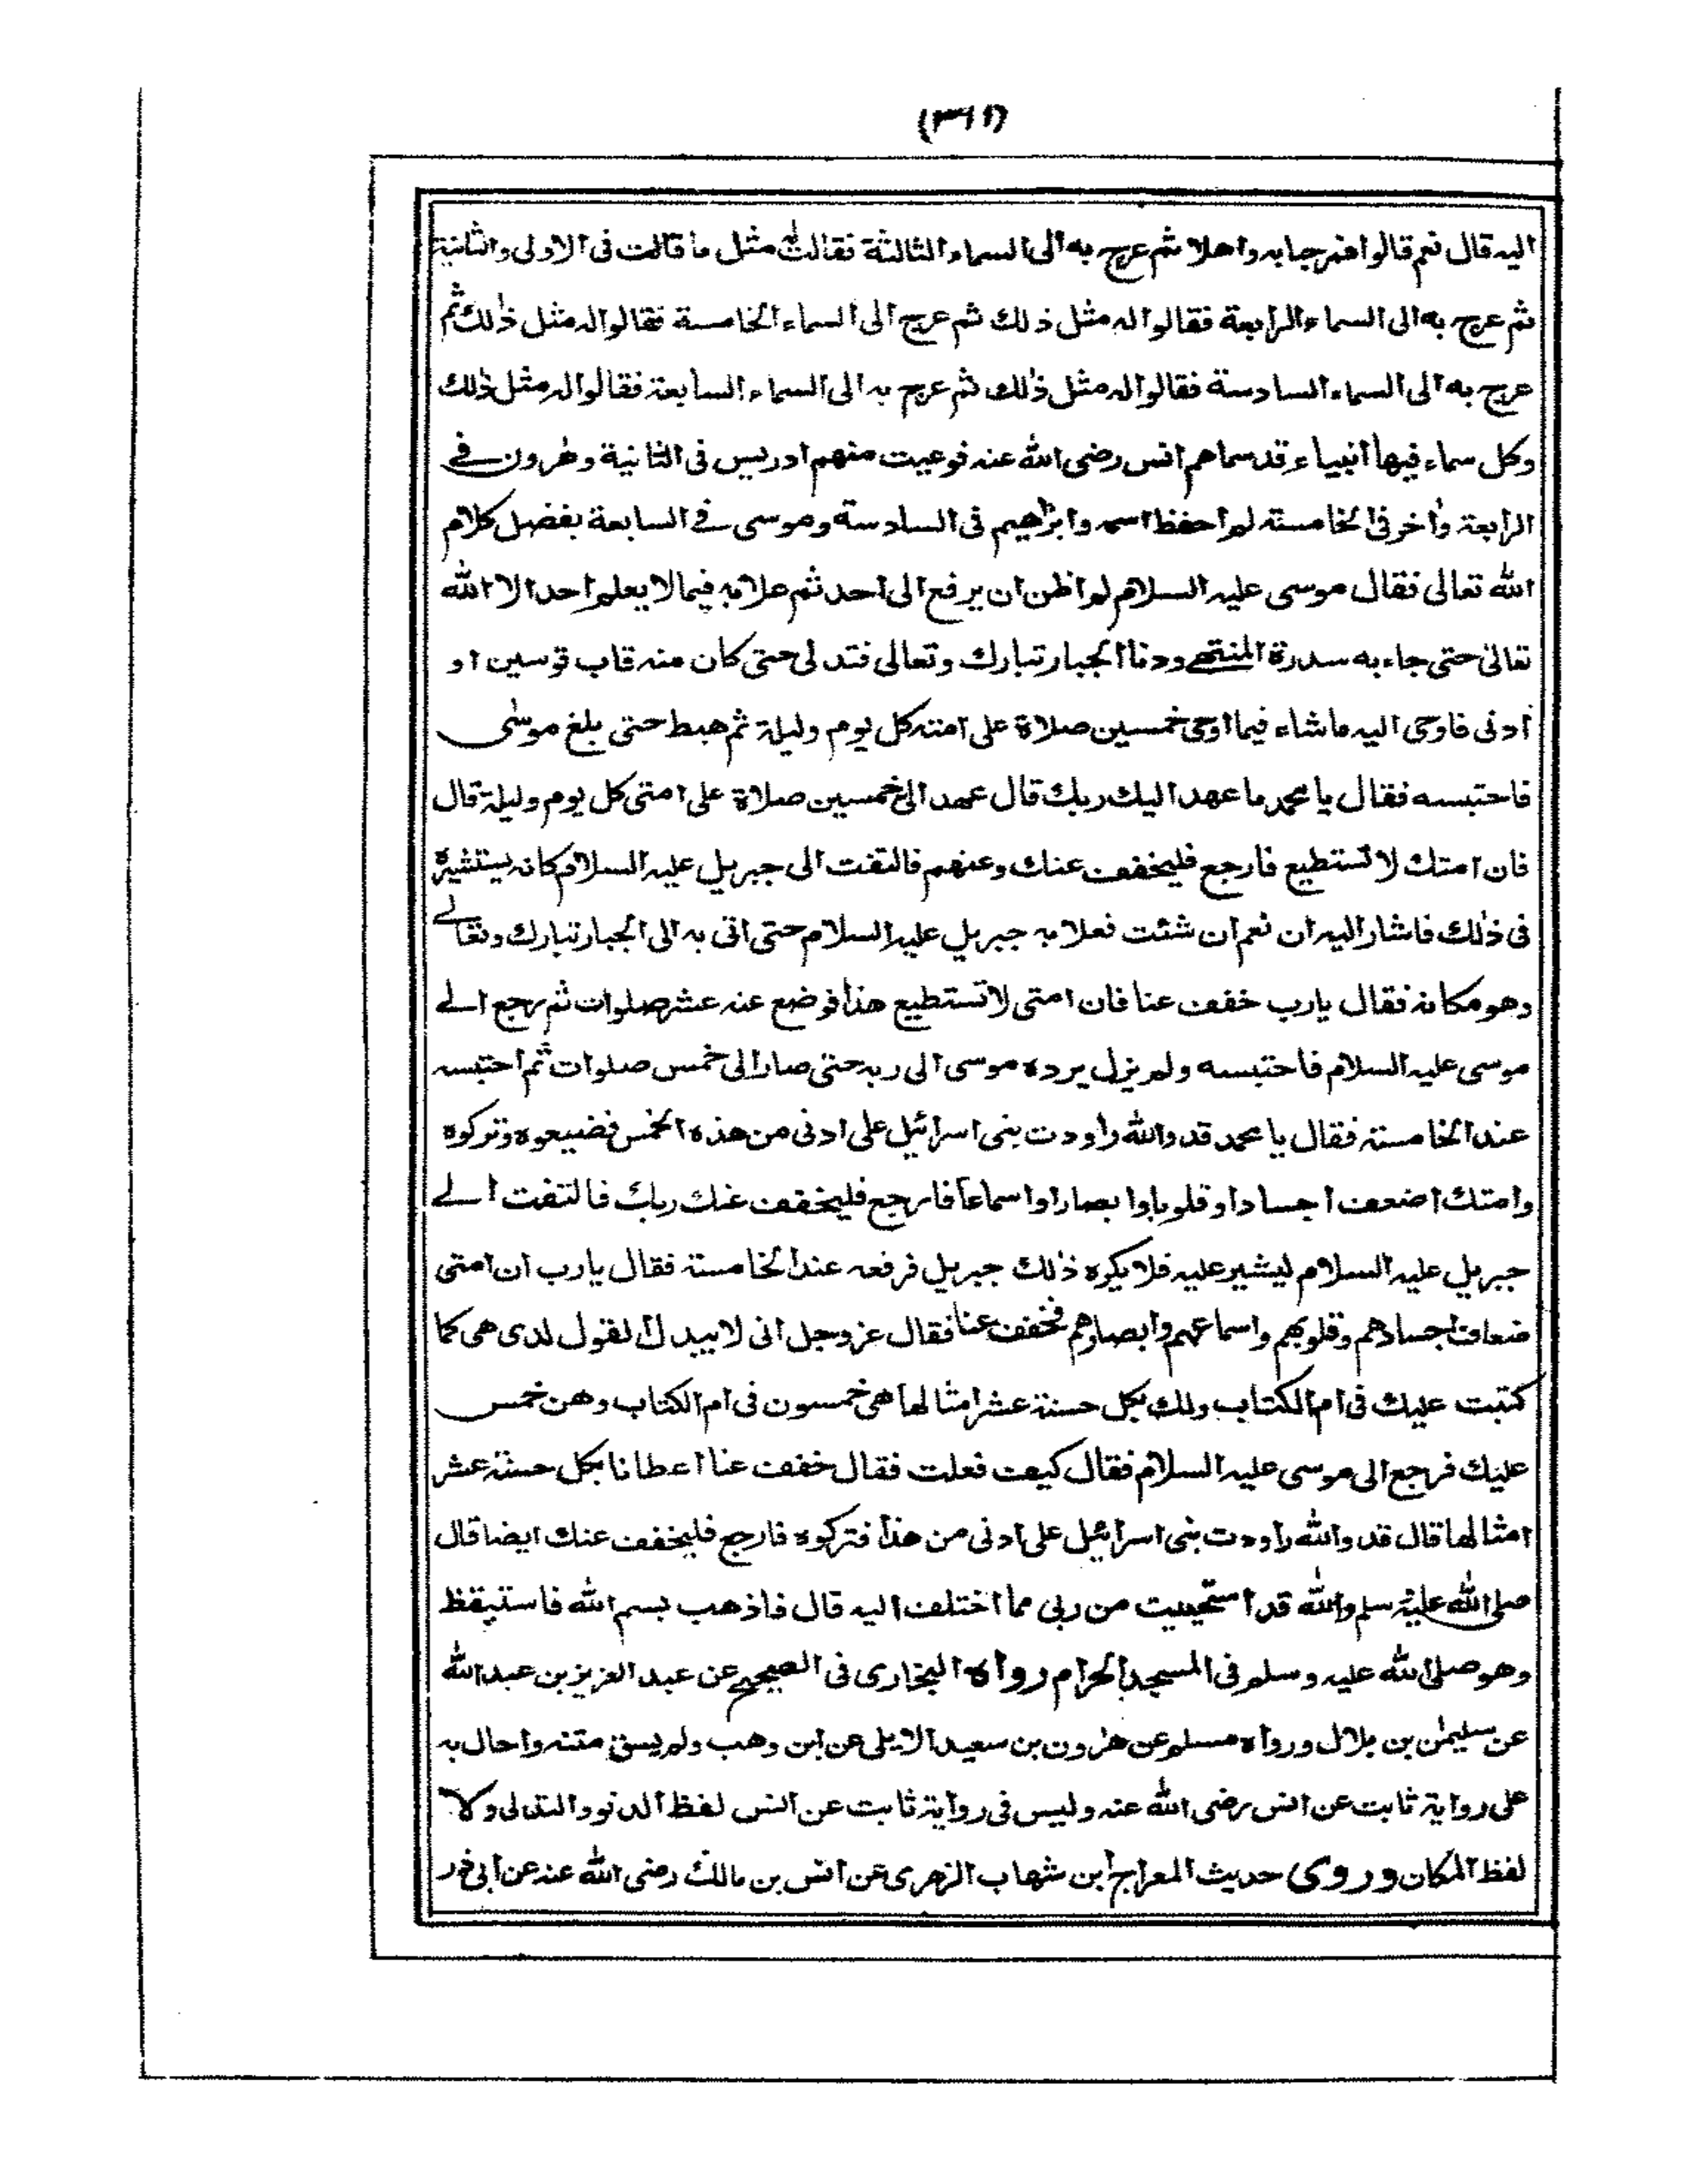 (٣١١)
اليه قال نعم قالوا فمرحبا به واهلا ثم عرج به الى السماء الثالثة فقالت له مثل ما قالت فى الاولى والثانية
ثم عرج به الى السماء الرابعة فقالوا له مثل ذلك ثم عرج الى السماء الخامسة فقالوا له مثل ذلك ثم
عرج به الى السماء السادسة فقالوا له مثل ذلك ثم عرج به الى السماء السابعة فقالوا له مثل ذلك
وكل سماء فيها انبياء قد سماهم انس رضى الله عنه فوعيت منهم ادريس فى الثانية وهرون فى
الرابعة وأخر فى الخامسة لم احفظ اسمه وابراهيم فى السادسة وموسى فى السابعة بفضل كلام
الله تعالى فقال موسى عليه السلام لم اظن ان يرفع الى احد ثم علا به فيما لا يعلم احد الا الله
تعالى حتى جاء به سدرة المنتهى ودنا الجبار تبارك وتعالى فتدلى حتى كان منه قاب قوسين او
أدنى فاوحى اليه ما شاء فيما اوحى خمسين صلاة على امته كل يوم وليلة ثم هبط حتى بلغ موسى
فاحتبسه فقال يا محمد ما عهد اليك ربك قال عهد الى خمسين صلاة على امتى كل يوم وليلة قال
فان امتك لا تستطيع فارجع فليخفف عنك وعنهم فالتفت الى جبريل عليه السلام كانه يستشيره
فى ذلك فاشار اليه ان نعم ان شئت فعلا به جبريل عليه السلام حتى اتى به الى الجبار تبارك وتعالى
وهو مكانه فقال يارب خفف عنا فان امتى لا تستطيع هذا فوضع عنه عشر صلوات ثم رجع الى
موسى عليه السلام فاحتبسه ولم يزل يرده موسى الى ربه حتى صار الى خمس صلوات ثم احتبسه
عند الخامسة فقال يا محمد قد والله راودت بنى اسرائيل على ادنى من هذه الخمس فضيعوه وتركوه
وامتك اضعف اجسادا وقلوبا وابصارا واسماعا فارجع فليخفف عنك ربك فالتفت الى
جبريل عليه السلام ليشير عليه فلا يكره ذلك جبريل فرفعه عند الخامسة فقال يارب ان امتى
ضعاف اجسادهم وقلوبهم واسماعهم وابصارهم فخفف عنا فقال عز وجل انى لا يبدل القول لدى هى كما
كتبت عليك فى ام الكتاب ولك بكل حسنة عشر امثالها هى خمسون فى ام الكتاب وهن خمس
عليك فرجع الى موسى عليه السلام فقال كيف فعلت فقال خفف عنا اعطانا بكل حسنة عشر
امثالها قال قد والله راودت بنى اسرائيل على ادنى من هذا فتركوه فارجع فليخفف عنك ايضا قال
صلى الله عليه وسلم والله قد استحييت من ربى مما اختلف اليه قال فاذهب بسم الله فاستيقظ
وهو صلى الله عليه وسلم فى المسجد الحرام رواه البخارى فى الصحيح عن عبد العزيز بن عبد الله
عن سليمٰن بن بلال ورواه مسلم عن هٰرون بن سعيد الايلى عن ابن وهب ولم يسق متنه واحال به
على رواية ثابت عن انس رضى الله عنه وليس فى رواية ثابت عن انس لفظ الدنو والتدلى ولا
لفظ المكان وروى حديث المعراج ابن شهاب الزهرى عن انس بن مالك رضى الله عنه عن ابى ذر